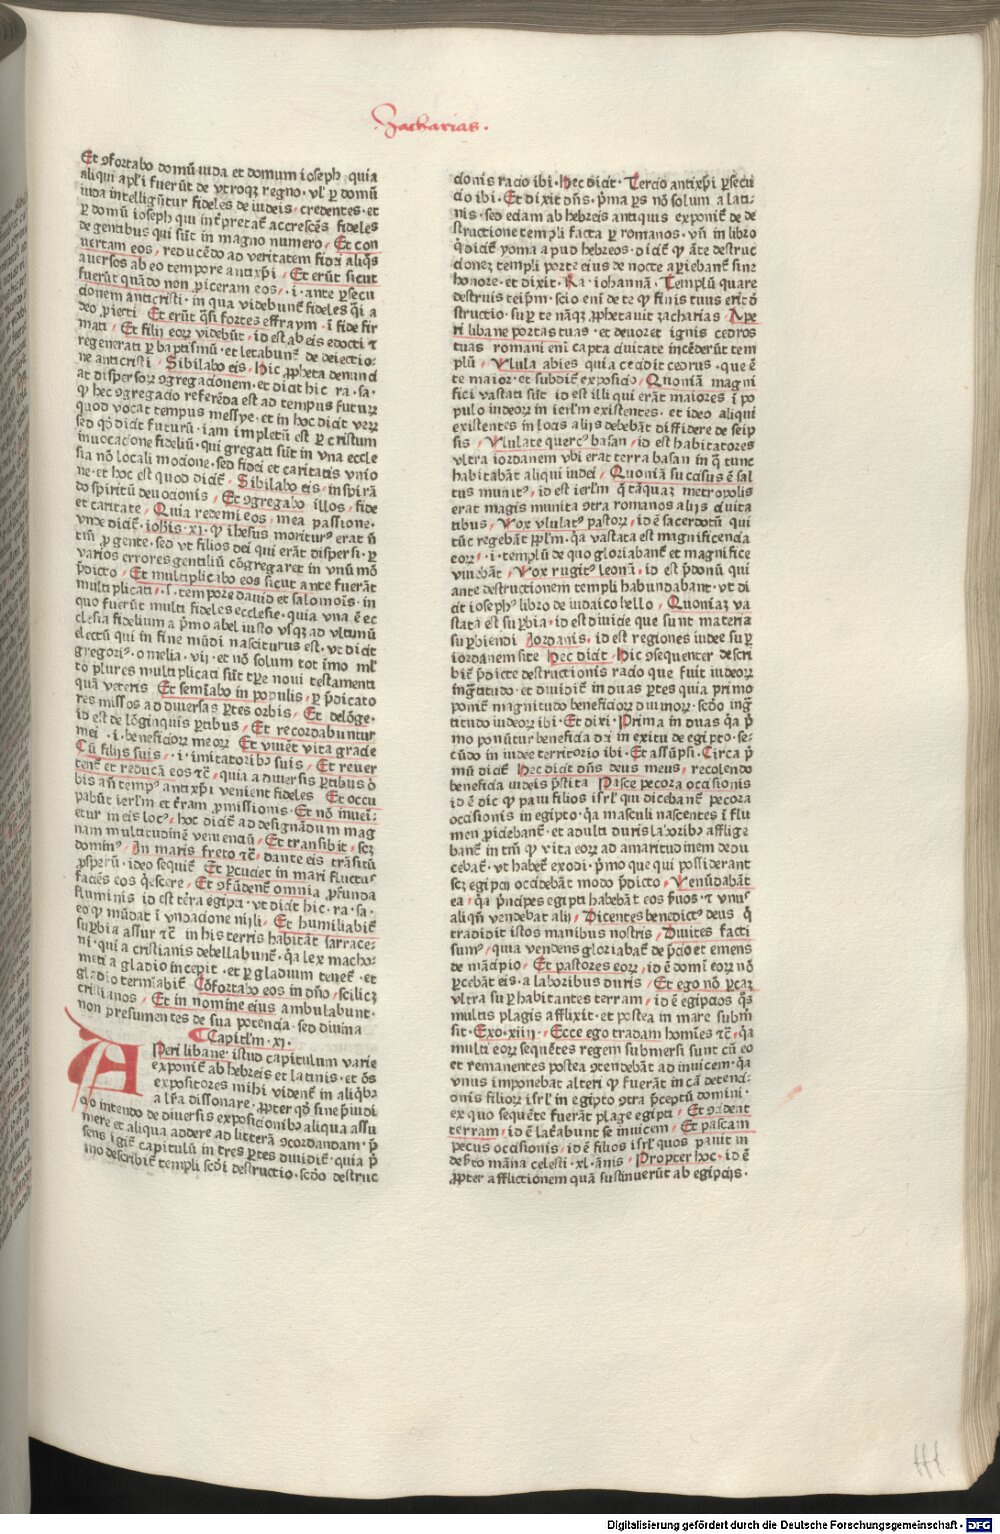 Zacharias.
Et ꝯfortabo domū iuda et domum ioseph. quia
aliqui apl'i fuerūt de vtroqꝫ regno. vl' ꝑ domū
iuda intelligūtur fideles de iudeis. credentes. et
ꝑ domū ioseph qui int̄pretat̄ accrescēs fideles
de gentibus qui sūt in magno numero, Et con
uertam eos, reducēdo ad veritatem fidei aliq̄s
auersos ab eo tempore antixp̄i, Et erūt sicut
fuerūt quādo non ꝓiceram eos, .i. ante ꝑsecu
cionem anticristi. in qua videbunt̄ fideles q̄i a
deo ꝓiecti Et erūt q̄si fortes effraym. ī fide fir
mati, Et filij eoꝝ videbūt, id est ab eis edocti ⁊
regenerati ꝑ baptismū. et letabunt̄ de deiectio-
ne anticristi, Sibilabo eis, Hic ꝓpheta denunci
at dispersoꝝ ꝯgregacionem. et dicit hic. ra. sa.
ꝙ hec ꝯgregacio referēda est ad tempus futuꝝ
quod vocat tempus messye. et in hoc dicit veꝝ
sed qd̄ dicit futurū. iam impletū est ꝑ cristum
inuocacione fideliū. qui gregati sūt in vna eccle
sia nō locali mocione. sed fidei et caritatis vnio
ne. et hoc est quod dicit̄, Sibilabo eis, inspirā
do spiritū deuocionis, Et ꝯgregabo illos, fide
et caritate, Quia redemi eos, mea passione.
vnde dicit̄. ioh̄is. xi. ꝙ ihesus moritur⁹ erat n̄
tm̄ ꝓ gente. sed vt filios dei qui erāt dispersi. ꝑ
varios errores gentiliū cōgregaret in vnū mō
p̄dicto, Et multiplicabo eos sicut ante fuerāt
multiplicati, .s. tempore dauid et salomoīs. in
quo fuerūt multi fideles ecclesie. quia vna ē ec
clesia fidelium a p̄mo abel iusto vsqꝫ ad vltimū
electū qui in fine mūdi nasciturus est. vt dicit
gregori⁹. omelia. vij. et nō solum tot īmo ml'
to plures multiplicati sūt tꝑe noui testamenti
quā veteris Et semīabo in populis, ꝑ p̄dicato
res missos ad diuersas ꝑtes orbis, Et delōge.
id est de lōginquis ꝑtibus, Et recordabuntur
mei .i. beneficioꝝ meoꝝ Et viuēt vita gracie
Cū filijs suis, .i. imitatoribꝰ suis, Et reuer
tent̄ et reducā eos ⁊c̄, quia a diuersis ꝑtibus o
bis an̄ temp⁹ antixp̄i venient fideles Et occu
pabūt ierl'm et t̄ram ꝓmissionis. Et nō inueī-
etur in eis loc⁹, hoc dicit̄ ad designādum mag
nam multitudinē venienciū, Et transibit, scꝫ
domin⁹, In maris freto ⁊c̄, dante eis trāsitū
ꝓsperū. ideo sequit̄ Et ꝑcuciet in mari fluctus
faciēs eos q̄escere, Et ꝯfūdent̄ omnia ꝓfunda
fluminis id est tēra egipti. vt dicit hic. ra. sa.
eo ꝙ mūdat̄ ī vndacione nijli, Et humiliabit̄
suꝑbia assur ⁊c̄ in his terris habitāt sarrace-
ni. qui a cristianis debellabunt̄. q̄a lex macho-
meti a gladio incepit. et ꝑ gladium tenet̄. et
gladio termīabit̄ Cōfortabo eos in dn̄o, scilicꝫ
cristianos, Et in nomine eius ambulabunt.
non presumentes de sua potencia. sed diuina
Capitl'm. xi.
APeri libane. istud capitulum varie
exponit̄ ab hebreis et latinis. et ōs
expositores mihi vident̄ in aliq̄bꝰ
a lr̄a dissonare. ꝓpter qd̄ sine p̄iudi
cio intendo de diuersis exposicionibꝰ aliqua assu
mere et aliqua addere ad litterā ꝯcordandam. p̄
sens igit̄ capitulū in tres ꝑtes diuidit̄. quia p̄
mo describit̄ templi scd̄i destructio. scd̄o destruc
cionis racio ibi. Hec dicit. Tercio antixp̄i ꝑsecu
cio ibi. Et dixit dn̄s. p̄ma ꝑs nō solum a lati-
nis. sed eciam ab hebreis antiquis exponit̄ de de
structione templi facta ꝑ romanos. vn̄ in libro
q̄ dicit̄ yoma apud hebreos. dicit̄ ꝙ āte destruc
cionez templi porte eius de nocte aꝑiebant̄ sine
honore. et dixit. Ra. iohannā. Templū quare
destruis teip̄m. scio enī de te ꝙ finis tuus erit ī
structio. suꝑ te nāqꝫ ꝓphetauit zacharias Ape
ri libane portas tuas. et deuoret ignis cedros
tuas romani enī capta ciuitate incēderūt tem
plū, Vlula abies quia cecidit cedrus. que ē
te maior. et subdit̄ exposicio, Quoniā magni
fici vastati sūt id est illi qui erāt maiores ī po
pulo iudeoꝝ in ierl'm existentes. et ideo aliqui
existentes in locis alijs debebāt diffidere de seip
sis, Vlulate querc⁹ basan, id est habitatores
vltra iordanem vbi erat terra basan in q̄ tunc
habitabāt aliqui iudei, Quoniā succisus ē sal
tus munit⁹, id est ierl'm q̄ tāquaꝫ metropolis
erat magis munita ꝯtra romanos alijs ciuita
tibus, Vox vlulat⁹ pastoꝝ, id ē sacerdotū qui
tūc regebāt ppl'm. q̄a vastata est magnificencia
eoꝝ, .i. templū de quo gloriabant̄ et magnifice
viuebāt, Vox rugit⁹ leonū. id est p̄donū qui
ante destructionem templi habundabant. vt di
cit ioseph⁹ libro de iudaico bello, Quoniaꝫ va
stata est suꝑbia, id est diuicie que sunt materia
suꝑbiendi Iordanis, id est regiones iudee suꝑ
iordanem site Hec dicit. Hic ꝯsequenter descri
bit̄ p̄dicte destructionis racio que fuit iudeoꝝ
ingr̄titudo. et diuidit̄ in duas ꝑtes quia primo
ponit̄ magnitudo beneficioꝝ diuinoꝝ. scd̄o ingr̄
titudo iudeoꝝ ibi. Et dixi. Prima in duas q̄a p̄
mo ponūtur beneficia dei in exitu de egipto. se-
cūdo in iudee territorio ibi. Et assūpsi. Circa p̄
mū dicit̄ Hec dicit dn̄s deus meus, recolendo
beneficia iudeis p̄stita Pasce pecora occisionis
id ē dic ꝙ paui filios isrl' qui dicebant̄ pecora
occisionis in egipto. q̄a masculi nascentes ī flu
men ꝓiciebant̄. et adulti duris laboribꝰ afflige
bant̄ in tm̄ ꝙ vita eoꝝ ad amaritudinem dedu
cebat̄. vt habet̄ exodi. p̄mo que qui possiderant
scꝫ egipcij occidebāt modo p̄dicto, Venūdabāt
ea. q̄a p̄ncipes egipti habebāt eos ꝓuos. ⁊ vnus
aliqn̄ vendebat alij, Dicentes benedict⁹ deus q̄
tradidit istos manibus nostris, Diuites facti
sum⁹, quia vendens gloriabat̄ de p̄cio et emens
de mācipio, Et pastores eoꝝ, id ē domī eoꝝ nō
ꝑcebāt eis. a laboribus duris, Et ego nō ꝑcaꝫ
vltra suꝑ habitantes terram, id ē egipcios q̄s
multis plagis afflixit. et postea in mare subm̄
sit. Exo. xiiij. Ecce ego tradam homīes ⁊c̄. q̄a
multi eoꝝ sequētes regem submersi sunt cū eo
et remanentes postea ꝯtendebāt ad inuicem. q̄a
vnus imponebat alteri ꝙ fuerāt in cā detenci-
onis filioꝝ isrl' in egipto ꝯtra p̄ceptū domini.
ex quo sequēte fuerāt plage egipti, Et ꝯcident
terram, id ē lat̄abunt se inuicem, Et pascam
pecus occisionis, id ē filios isrl' quos pauit in
deſ̄to māna celesti. xl. ānis, Propter hoc. id ē
ꝓpter afflictionem quā sustinuerūt ab egipcijs.
Digitalisierung gefördert durch die Deutsche Forschungsgemeinschaft - DFG